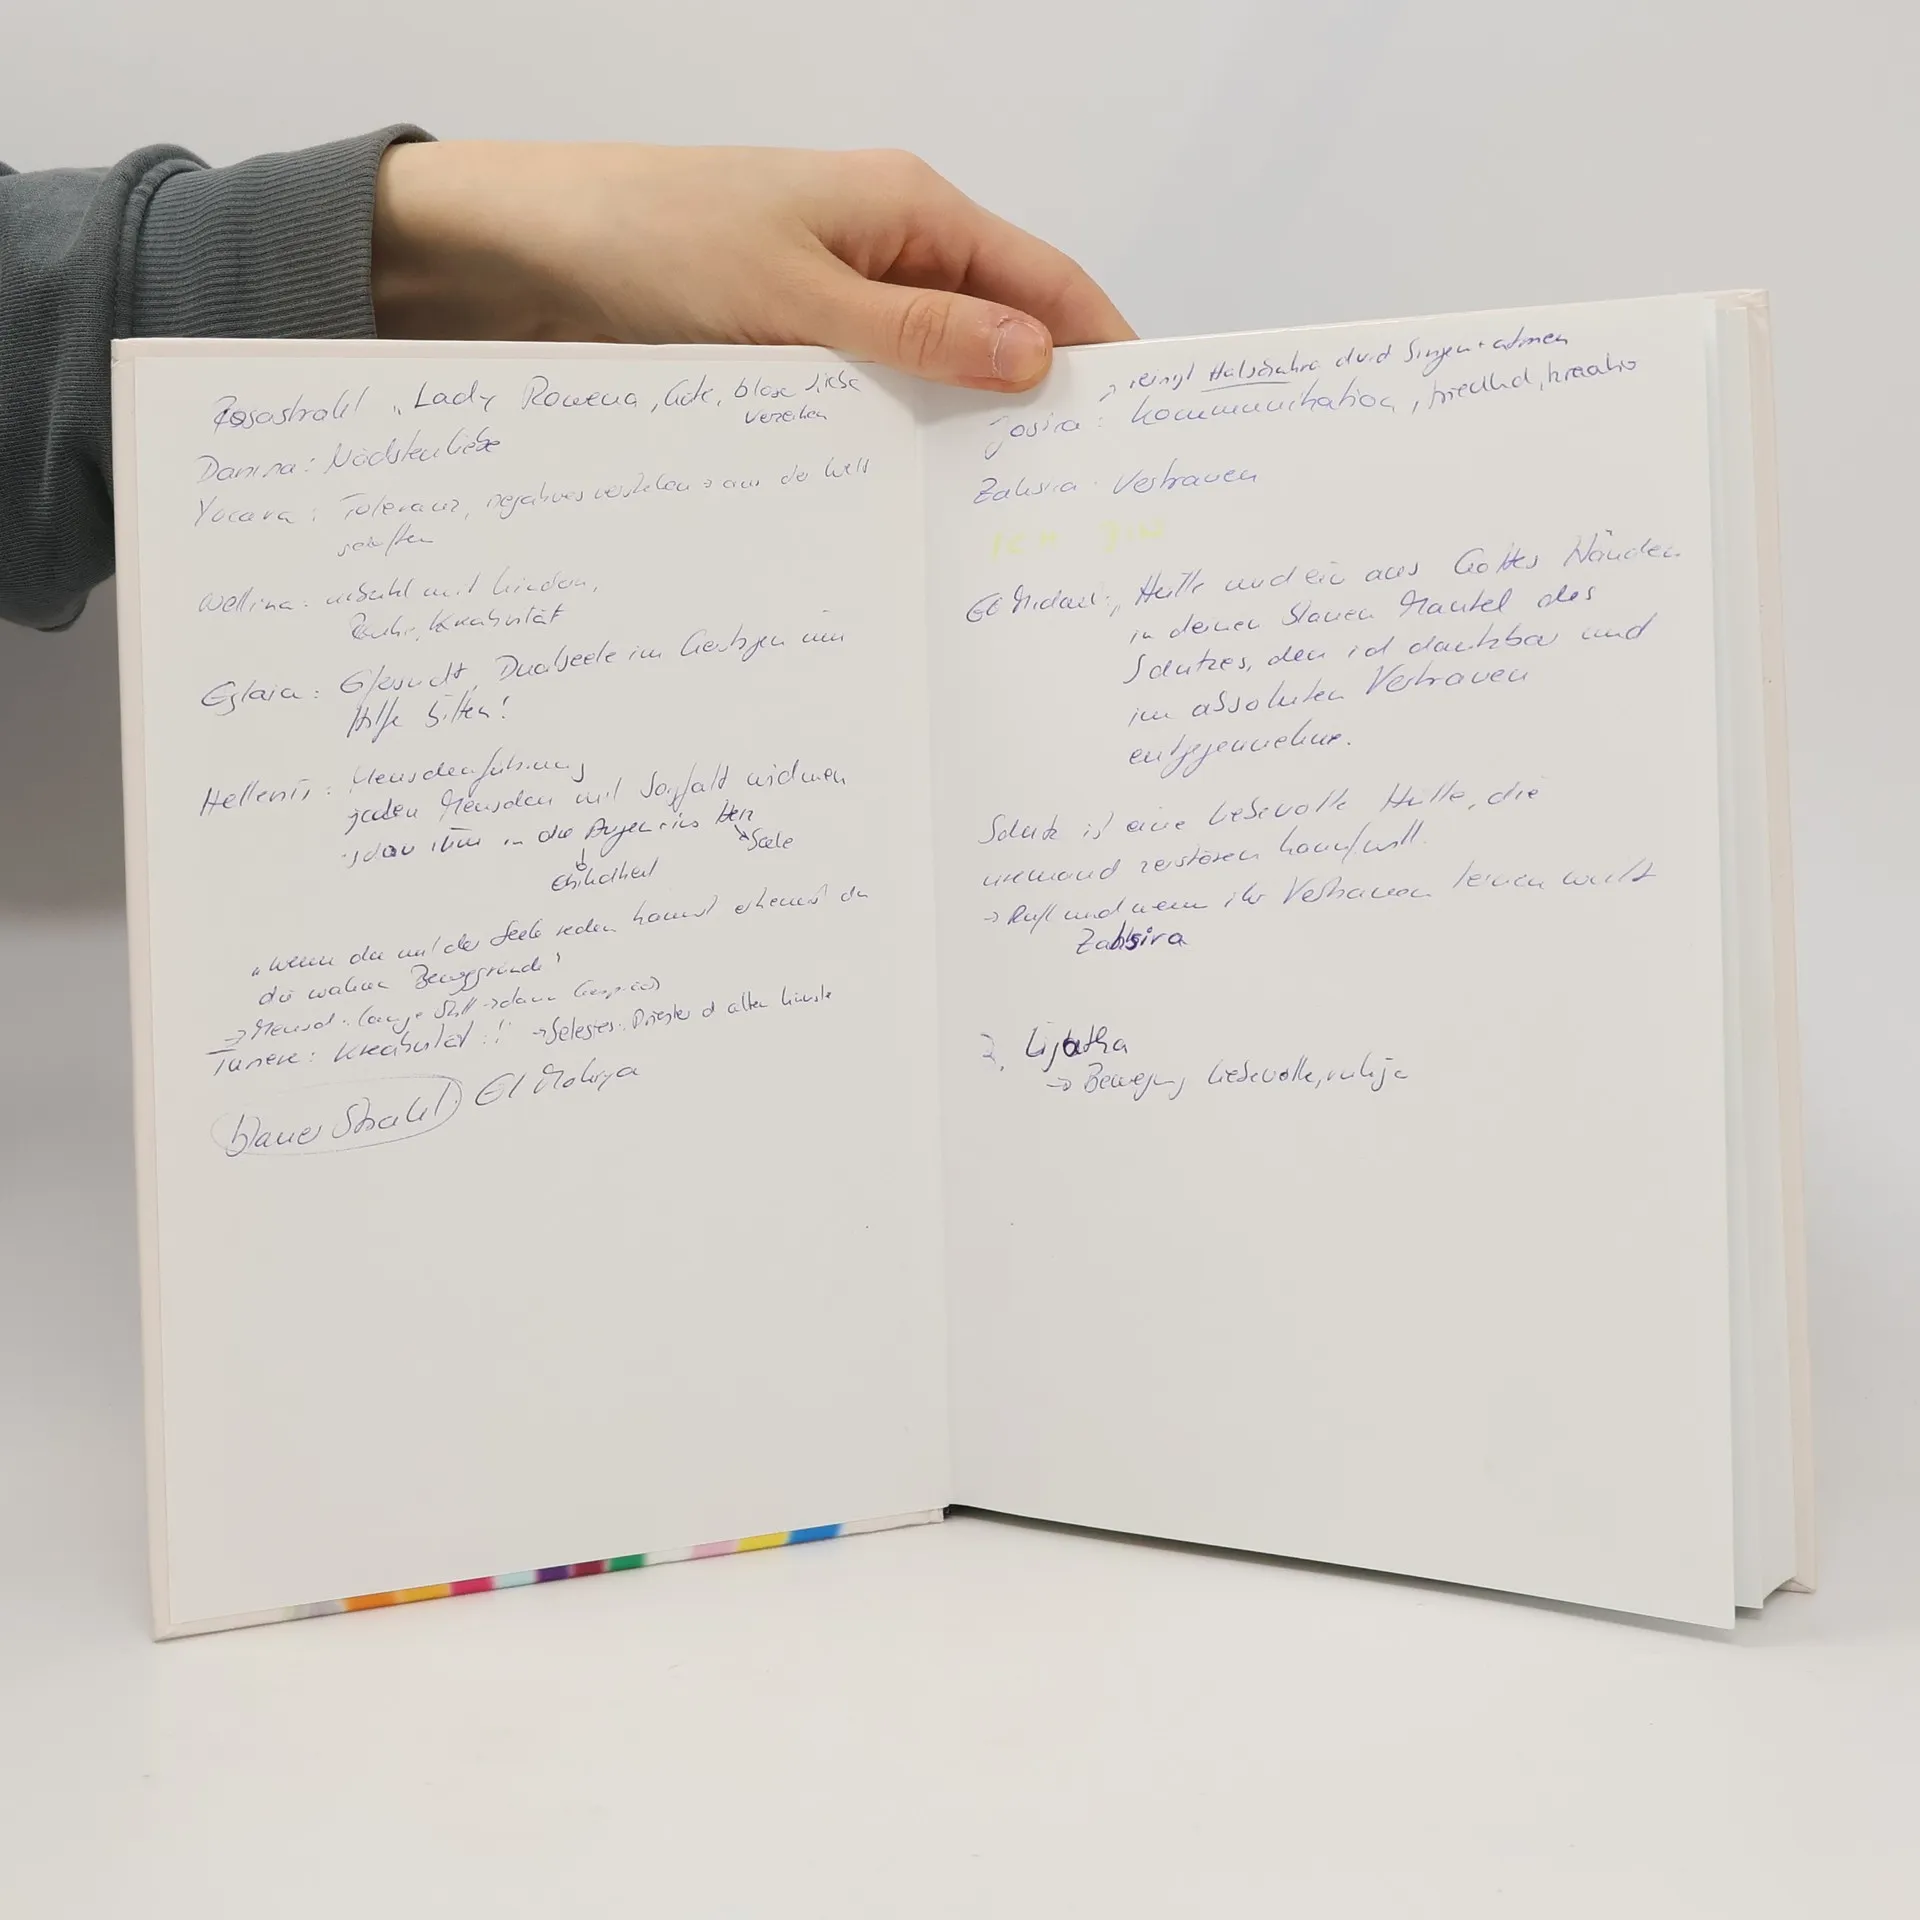 Rosastrahl, Lady Rowena, Güte, bl. Liebe
verzeihen
Danina: Nächstenliebe
Yucara: Toleranz, negatives verstehen → aus der Welt
schaffen
Wellina: mit Kindern,
Ruhe, Kreativität
Eglaia: Eifersucht, Dualseele im Geistigen um
Hilfe bitten!
Hellenis: Menschenführung
jeden Menschen mit Sorgfalt widmen
schau ihm in die Augen + ins Herz
Seele
Ehrlichkeit
"wenn du mit der Seele reden kannst erkennst du
die wahren Beweggründe"
→ Mensch lange still → dann
Tanere: Kreativität!! → Priester d alten Künste
blauer Strahl El Morya
→ reinigt Halschakra durch Singen + atmen
Josira: Kommunikation, friedlich, kreativ
Zahsira: Vertrauen
ICH BIN
El Michael: "Hülle und ein aus Gottes Händen
in deinen blauen Mantel des
Schutzes, den ich dankbar und
im absoluten Vertrauen
entgegennehme.
Schutz ist eine liebevolle Hülle, die
niemand zerstören kann/will.
→ Ruft und wenn ihr Vertrauen lernen wollt
Zahsira
2. Lijatha
→ Bewegung liebevolle, ruhige